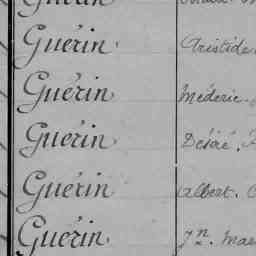 Guérin Aristide
Guérin Méderic
Guerin Désiré.
Guérin Albert.
Guérin Jn. Mar